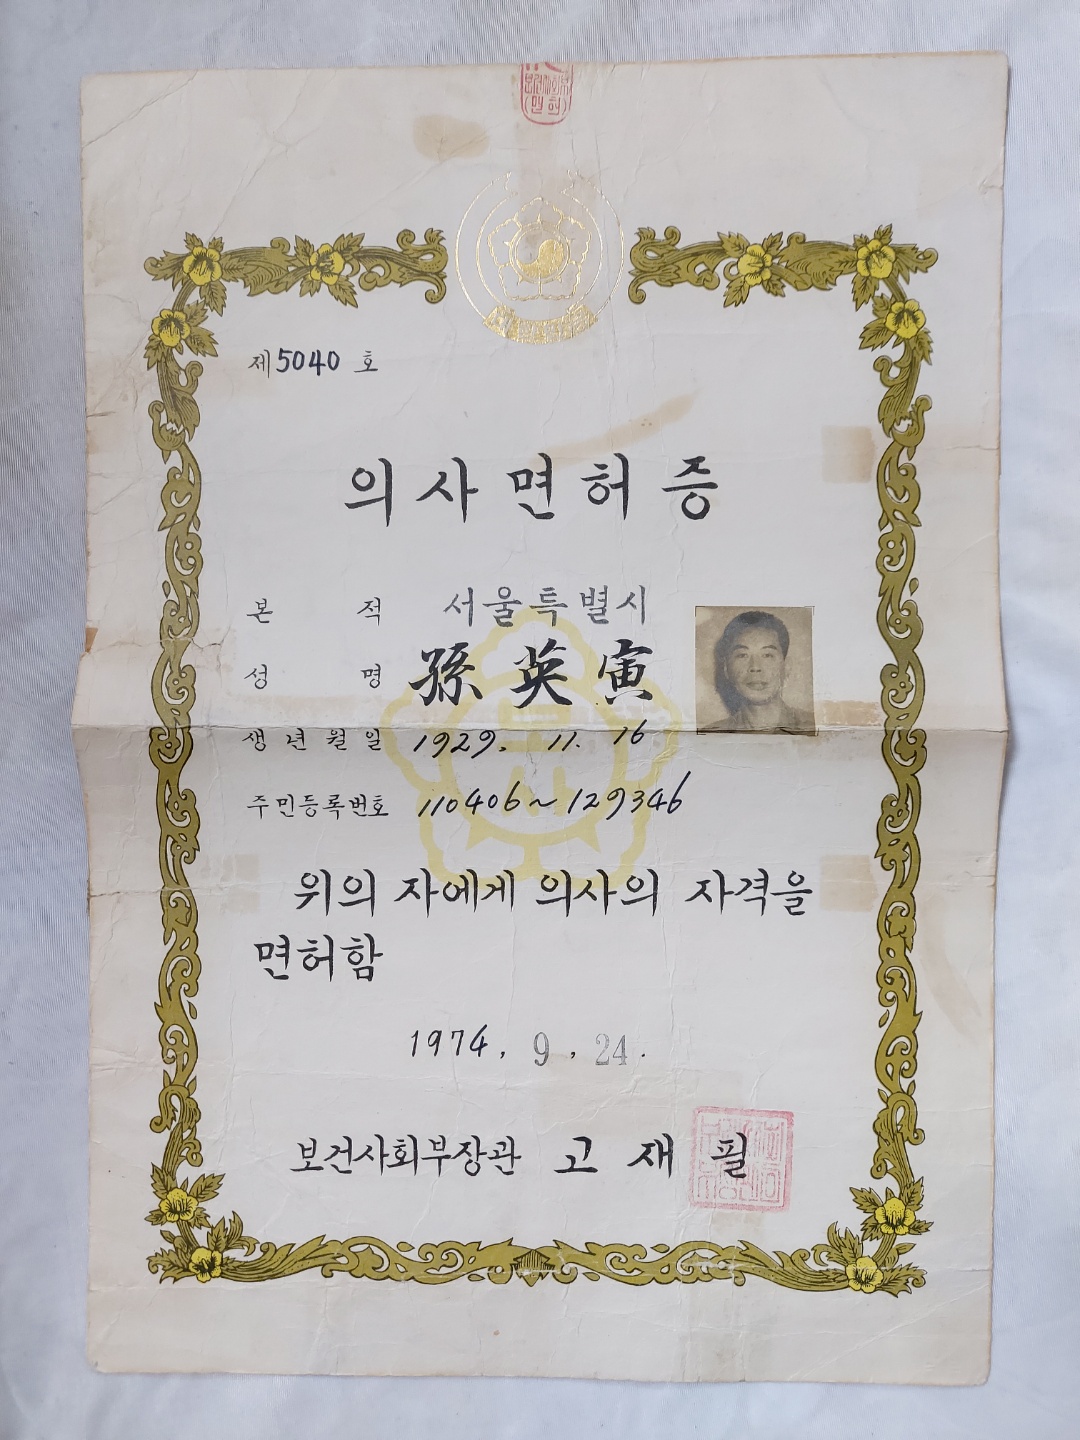 보건사회부
(면허)
제5040 호
의사면허증
본 적 서울특별시
성 명 孫英寅
생년월일 1929. 11. 16
주민등록번호 110406~129346
위의 자에게 의사의 자격을
면허함
1974. 9. 24.
보건사회부장관 고재필